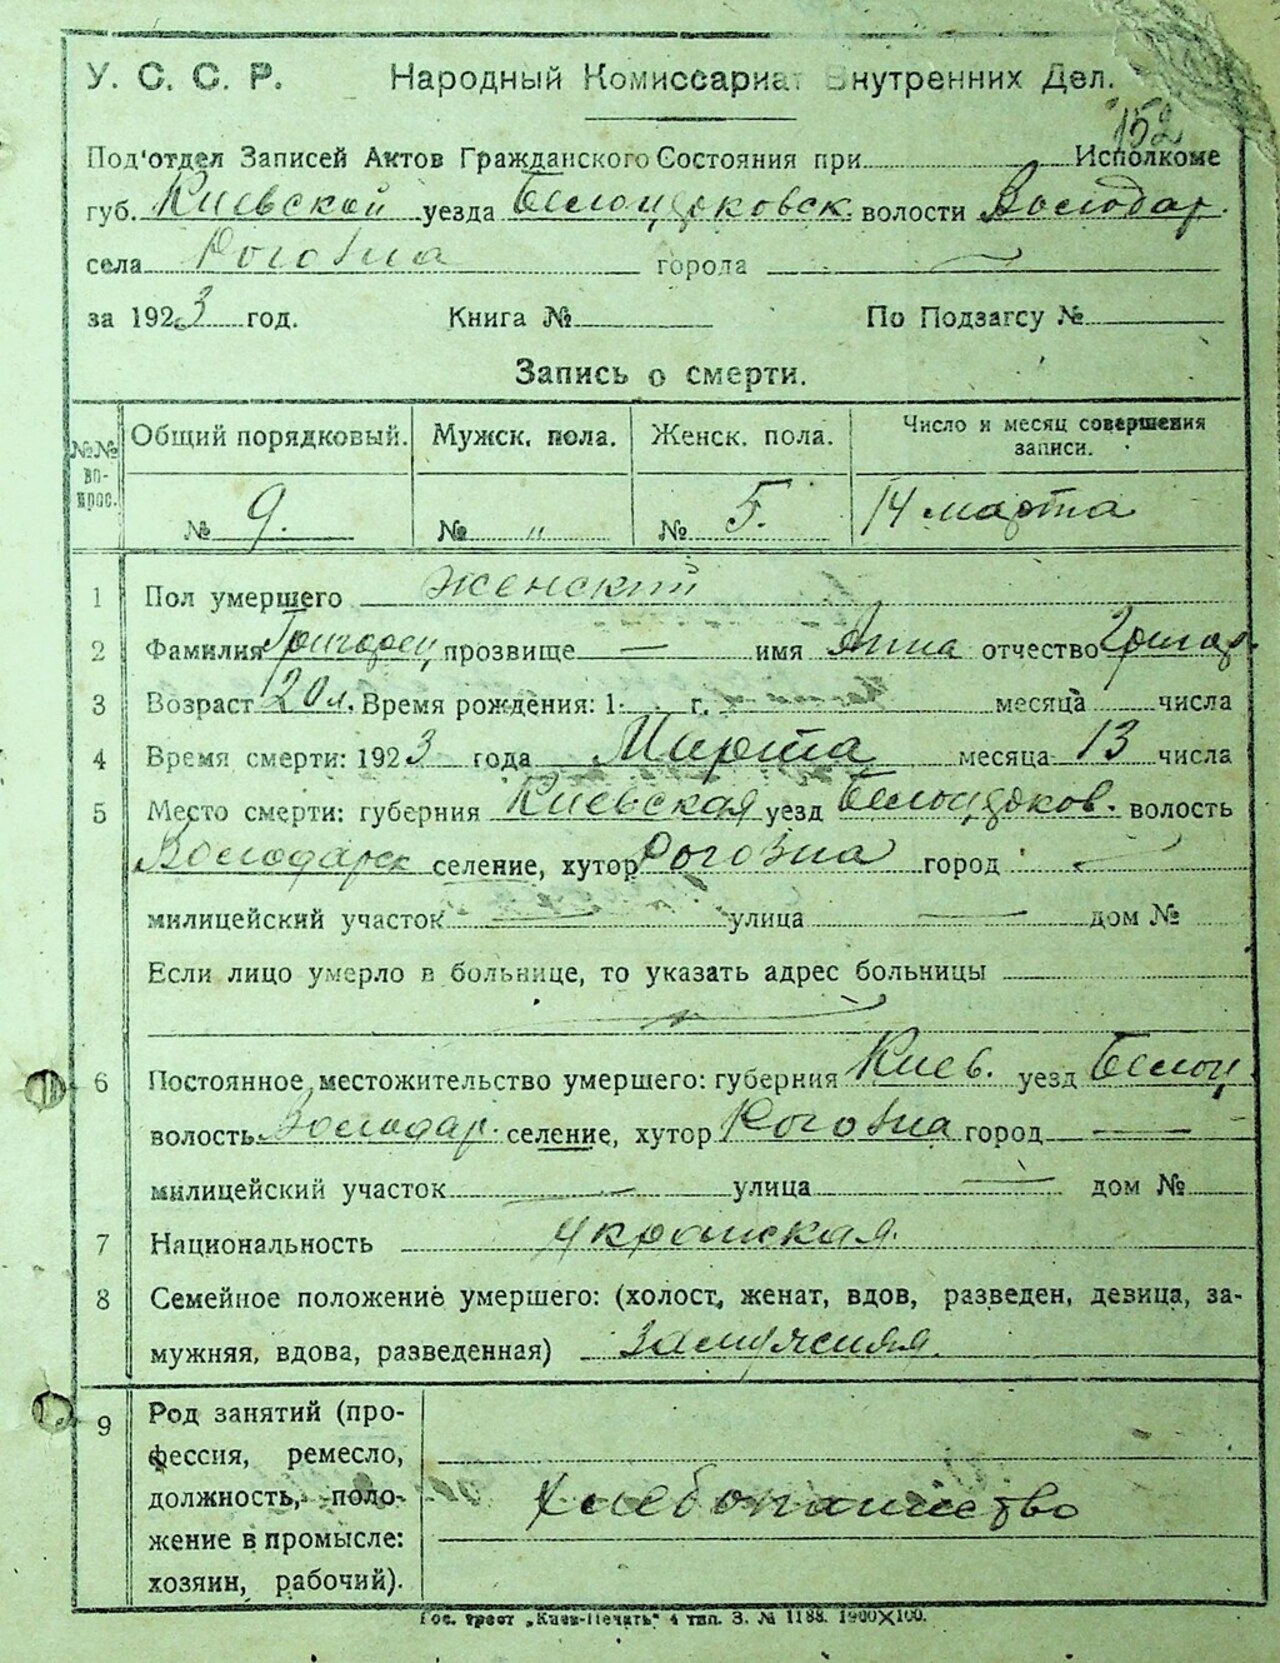 У. С. С. Р. Народный Комиссариат Внутренних Дел.
152
Под'отдел Записей Актов Гражданского Состояния при Исполкоме
губ. Киевской уезда Белоцерковск. волости Володар.
села Роговна города —
за 1923 год. Книга № По Подзагсу №
Запись о смерти.
№№ вопрос. Общий порядковый. Мужск. пола. Женск. пола. Число и месяц совершения записи.
№ 9. № „ № 5. 14 марта
1 Пол умершего женский
2 Фамилия Григорец прозвище — имя Анна отчество Григор.
3 Возраст 20 л. Время рождения: 1 г. месяца числа
4 Время смерти: 1923 года Марта месяца 13 числа
5 Место смерти: губерния Киевская уезд Белоцерков. волость
Володарск селение, хутор Роговна город —
милицейский участок — улица — дом №
Если лицо умерло в больнице, то указать адрес больницы
—
6 Постоянное местожительство умершего: губерния Киев. уезд Белоц.
волость Володар. селение, хутор Роговна город —
милицейский участок — улица — дом №
7 Национальность Украинская.
8 Семейное положение умершего: (холост, женат, вдов, разведен, девица, за-
мужняя, вдова, разведенная) Замужняя.
9 Род занятий (про-
фессия, ремесло,
должность, поло-
жение в промысле:
хозяин, рабочий).
Хлебопашество
Гос. трест „Киев-Печать" 4 тип. З. № 1188. 1900×100.